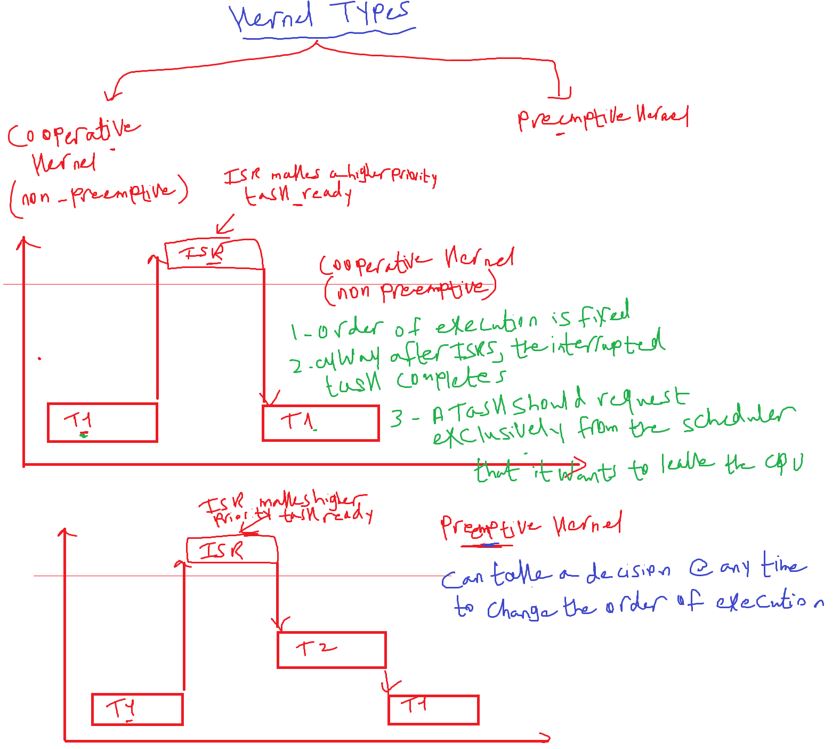 Kernel Types
Cooperative
Kernel
(non_preemptive)
Preemptive Kernel
ISR makes a higher priority
task_ready
ISR
Cooperative Kernel
(non preemptive)
1-order of execution is fixed
2. after ISRS, the interrupted
task completes
3- A Task should request
exclusively from the scheduler
that it wants to leave the CPU
T1
T1
ISR makes higher
priority task ready
ISR
Preemptive Kernel
Can take a decision @ any time
to change the order of execution
T2
T1
T1